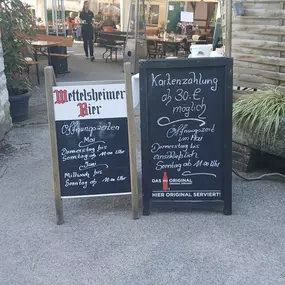 Wettelsheimer
Bier
Öffnungszeiten
Mai
Donnerstag bis
Sonntag ab 11 00 Uhr
Juni
Mittwoch bis
Sonntag ab 11 00 Uhr
Kartenzahlung
ab 30.- €
möglich
Öffnungszeit
im Mai
Donnerstag bis
einschließlich
Sonntag ab 11 00 Uhr
DAS ORIGINAL
ORIGINAL SERVIERT!
HIER ORIGINAL SERVIERT